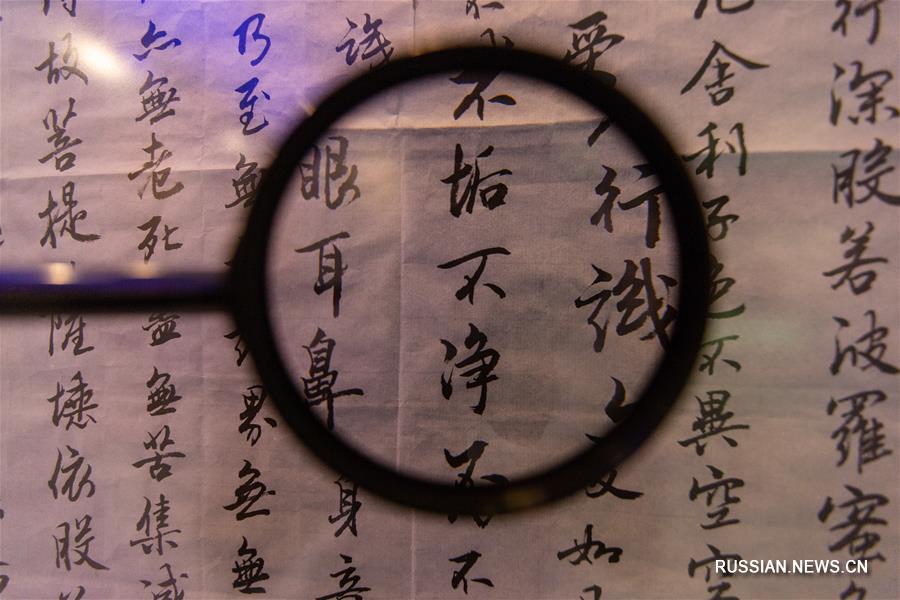 行深般若波羅蜜
舍利子色不異空空
受行識亦復如
不垢不净不不
識眼耳鼻身意
乃至無界無無
亦無老死盡無苦集滅
故菩提薩埵依般
RUSSIAN.NEWS.CN